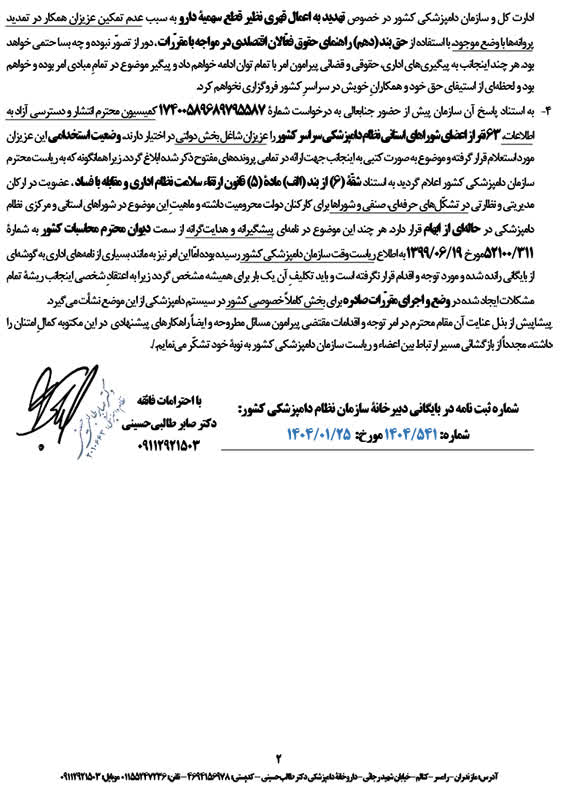 ادارت کل و سازمان دامپزشکی کشور در خصوص تهدید به اعمال قهری نظیر قطع سهمیهٔ دارو به سبب عدم تمکین عزیزان همکار در تمدید
پروانه‌ها با وضع موجود، با استفاده از حق بند (دهم) راهنمای حقوق فعّالان اقتصادی در مواجه با مقرّرات، دور از تصوّر نبوده و چه بسا حتمی خواهد
بود. هر چند اینجانب به پیگیری‌های اداری، حقوقی و قضائی پیرامون امر با تمام توان ادامه خواهم داد و پیگیر موضوع در تمامِ مبادی امر بوده و خواهم
بود و لحظه‌ای از استیفای حق خود و همکارانِ خویش در سراسرِ کشور فروگزاری نخواهم کرد.
۴- به استناد پاسخ آن سازمان پیش از حضور جنابعالی به درخواست شمارهٔ ۱۷۴۰۰۵۸۹۶۸۹۷۹۵۵۸۷ کمیسیون محترم انتشار و دسترسی آزاد به
اطلاعات، ۶۳ نفر از اعضای شوراهای استانی نظام دامپزشکی سراسر کشور را عزیزان شاغل بخش دولتی در اختیار دارند. وضعیت استخدامی این عزیزان
مورد استعلام قرار گرفته و موضوع به صورت کتبی به اینجانب جهت ارائه در تمامی پرونده‌های مفتوح ذکر شده ابلاغ گردد. زیرا همانگونه که به ریاست محترم
سازمان دامپزشکی کشور اعلام گردید به استناد شقّهٔ (۶) از بند (الف) مادهٔ (۵) قانون ارتقاء سلامت نظام اداری و مقابله با فساد، عضویت در ارکان
مدیریتی و نظارتی در تشکّل‌های حرفه‌ای، صنفی و شوراها برای کارکنان دولت محرومیت داشته و ماهیتِ این موضوع در شوراهای استانی و مرکزی نظام
دامپزشکی در هاله‌ای از ابهام قرار دارد. هر چند این موضوع در نامه‌ی پیشگیرانه و هدایت‌گرانه از سمت دیوان محترم محاسبات کشور به شمارهٔ
۵۲۱۰۰/۳۱۱ مورخ ۱۳۹۹/۰۶/۱۹ به اطلاع ریاست وقت سازمان دامپزشکی کشور رسیده بوده امّا این امر نیز به مانند بسیاری از نامه‌های اداری به گوشه‌ای
از بایگانی رانده شده و مورد توجه و اقدام قرار نگرفته است و باید تکلیفِ آن یک بار برای همیشه مشخص گردد زیرا به اعتقادِ شخصی اینجانب ریشهٔ تمام
مشکلات ایجاد شده در وضع و اجرای مقرّرات صادره برای بخش کاملاً خصوصی کشور در سیستم دامپزشکی از این موضع نشأت می‌گیرد.
پیشاپیش از بذل عنایت آن مقام محترم در امر توجه و اقدامات مقتضی پیرامون مسائل مطروحه و ایضاً راهکارهای پیشنهادی در این مکتوبه کمالِ امتنان را
داشته، مجدداً از بازگشائی مسیر ارتباط بین اعضاء و ریاست سازمان دامپزشکی کشور به نوبهٔ خود تشکّر می‌نمایم./.
با احترامات فائقه
دکتر صابر طالبی‌حسینی
۰۹۱۱۲۹۲۱۵۰۳
شماره ثبت نامه در بایگانی دبیرخانهٔ سازمان نظام دامپزشکی کشور:
شماره: ۱۴۰۴/۵۴۱ مورخ: ۱۴۰۴/۰۱/۲۵
۲
آدرس: مازندران – رامسر – کتالم – خیابان شهید رجائی – داروخانهٔ دامپزشکی دکتر طالب‌حسینی – کدپستی: ۴۶۹۴۱۵۶۹۷۸ – تلفن: ۰۱۱۵۵۲۴۷۲۳۶ موبایل: ۰۹۱۱۲۹۲۱۵۰۳